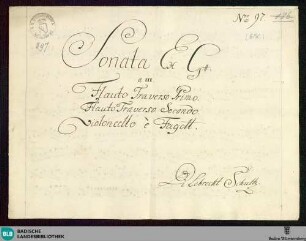 No. 97.
897
Sonata Ex G♯.
a III
Flauto Traverso Primo.
Flauto Traverso Secondo.
Violoncello è Fagott.
Schuth
BLB
BADISCHE
LANDESBIBLIOTHEK
Baden-Württemberg